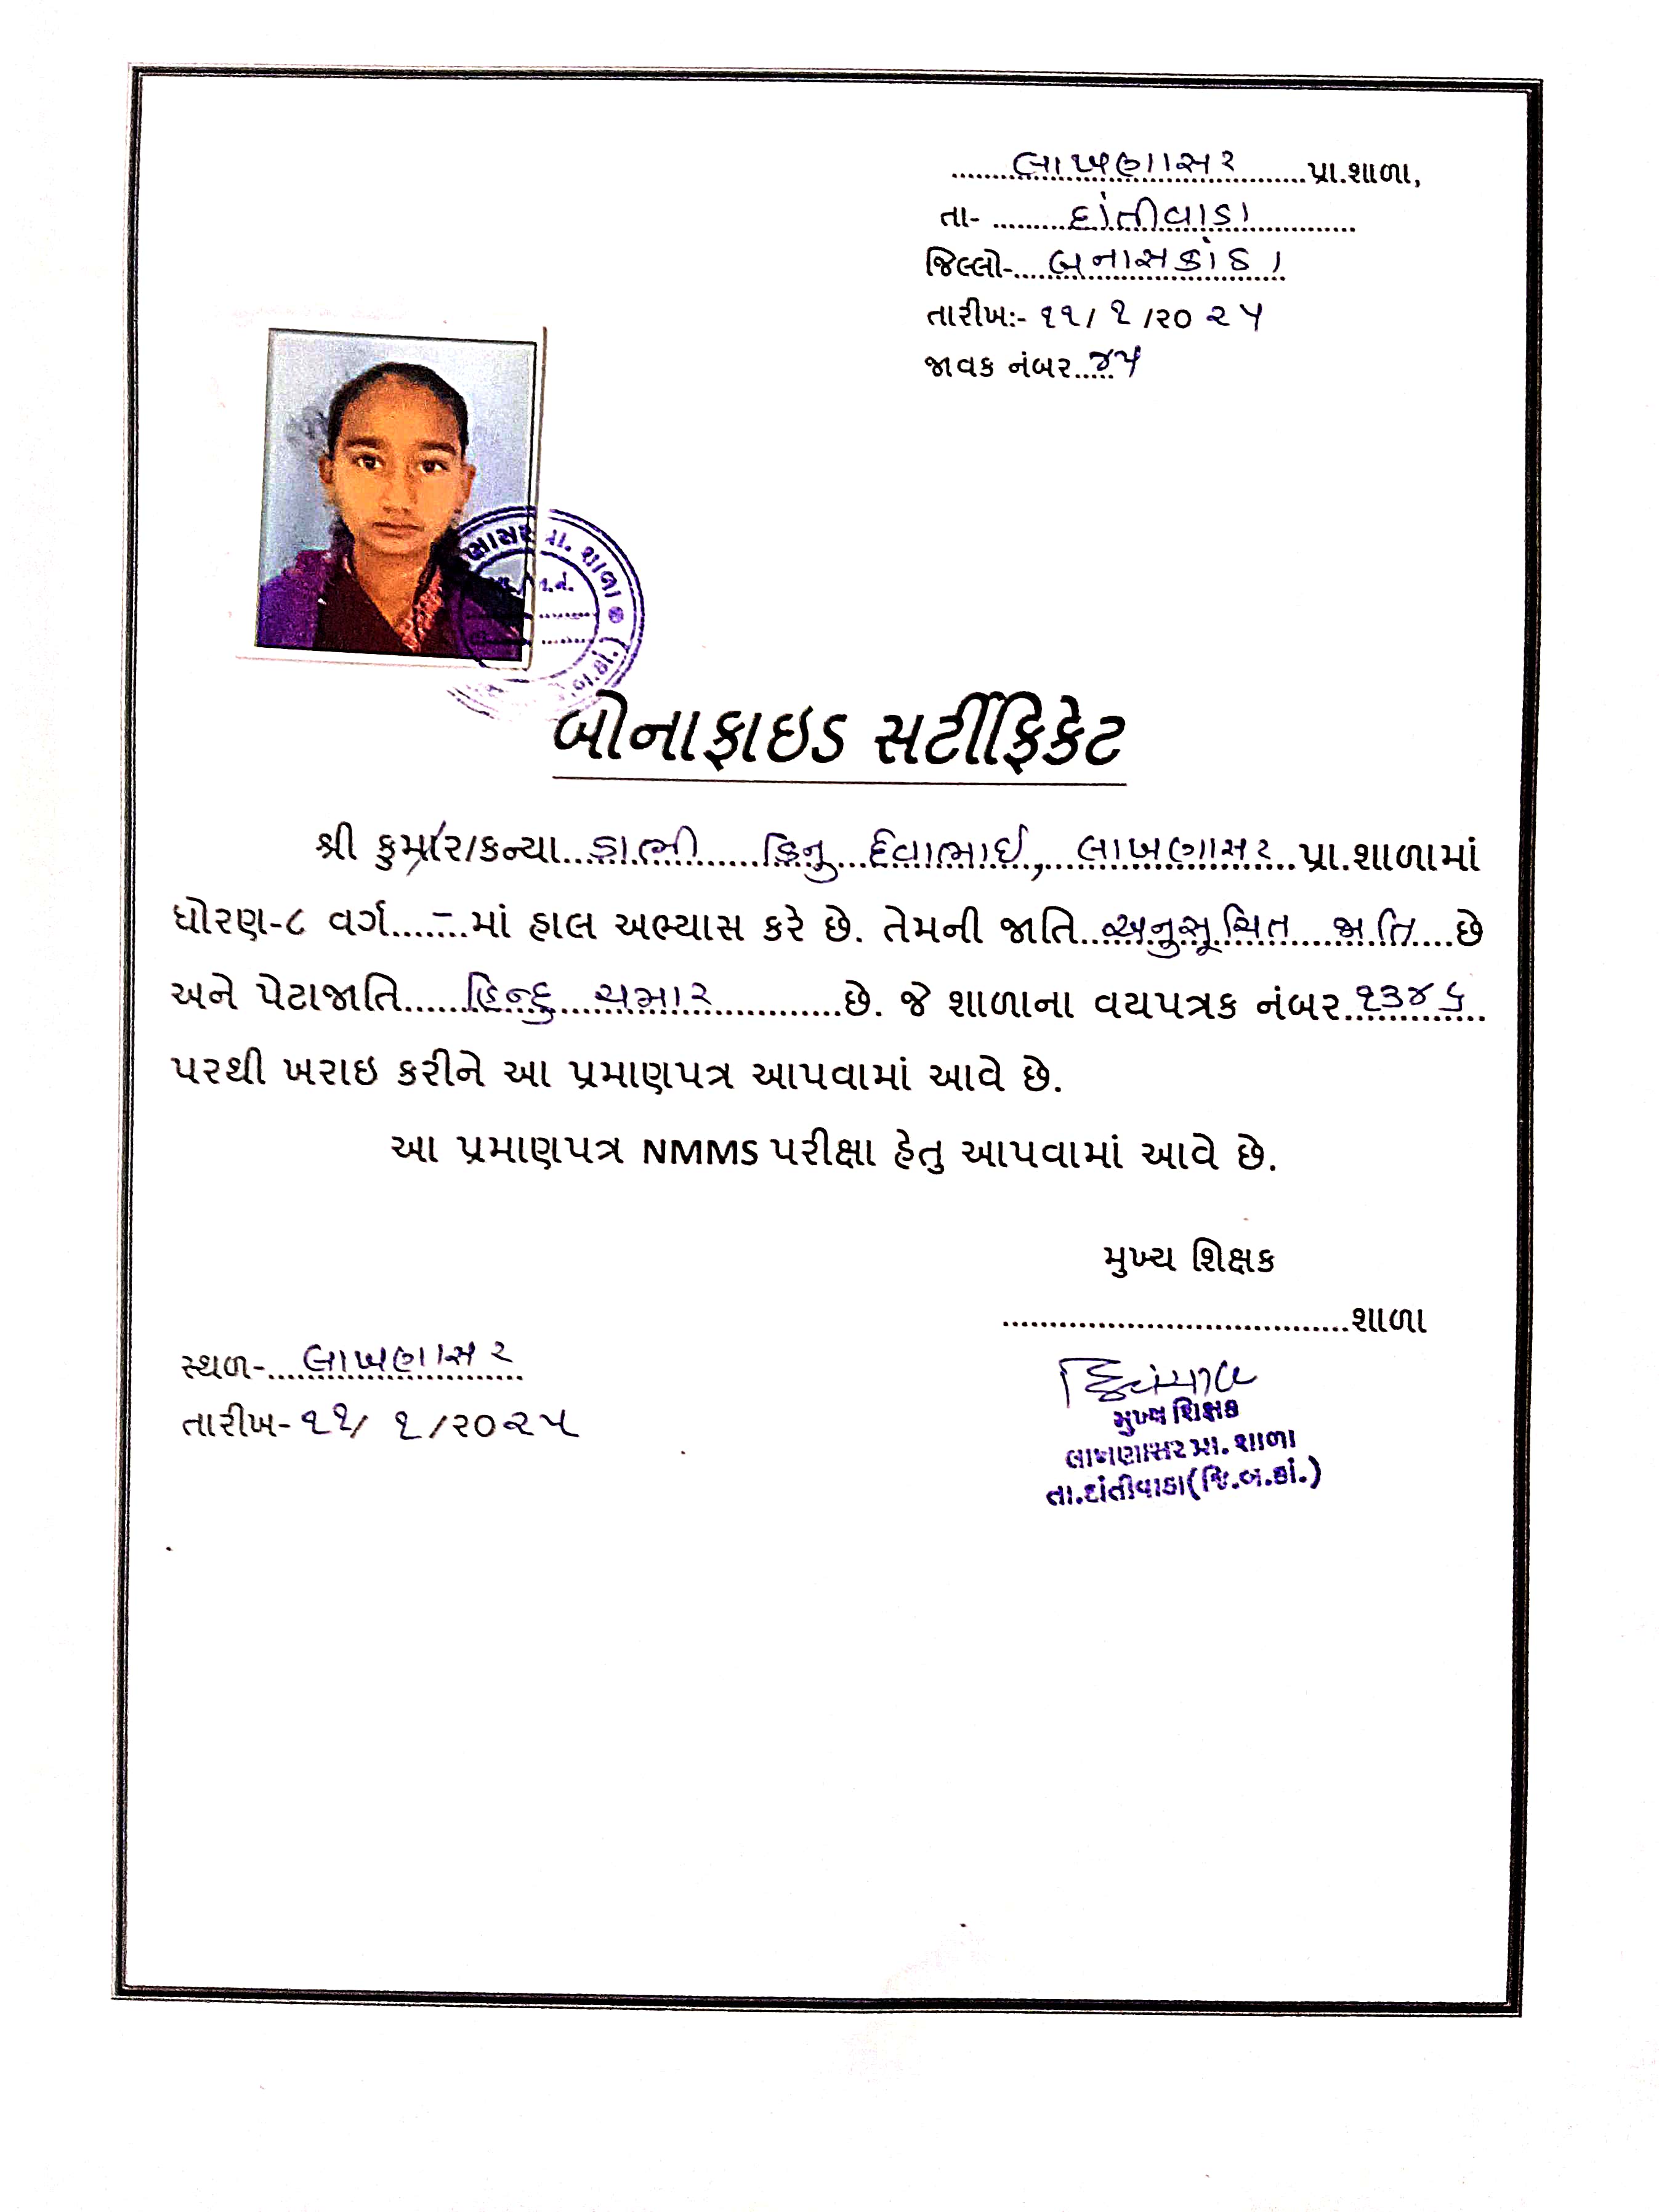 લાખણાસર પ્રા.શાળા,
તા- દાંતીવાડા
જિલ્લો- બનાસકાંઠા
તારીખ:- ૧૧/ ૧ /૨૦ ૨૫
જાવક નંબર.....૪૫
પ્રા. શાળા
બોનાફાઇડ સર્ટીફિકેટ
શ્રી કુમાર/કન્યા...ડાભી કિનુ દેવાભાઈ, લાખણાસર પ્રા.શાળામાં
ધોરણ-૮ વર્ગ....–...માં હાલ અભ્યાસ કરે છે. તેમની જાતિ અનુસૂચિત જાતિ છે
અને પેટાજાતિ હિન્દુ ચમાર છે. જે શાળાના વયપત્રક નંબર ૧૩૪૬
પરથી ખરાઇ કરીને આ પ્રમાણપત્ર આપવામાં આવે છે.
આ પ્રમાણપત્ર NMMS પરીક્ષા હેતુ આપવામાં આવે છે.
મુખ્ય શિક્ષક
....................................શાળા
સ્થળ- લાખણાસર
તારીખ- ૧૧/ ૧ /૨૦૨૫
મુખ્ય શિક્ષક
લાખણાસર પ્રા. શાળા
તા.દાંતીવાડા(જિ.બ.કાં.)